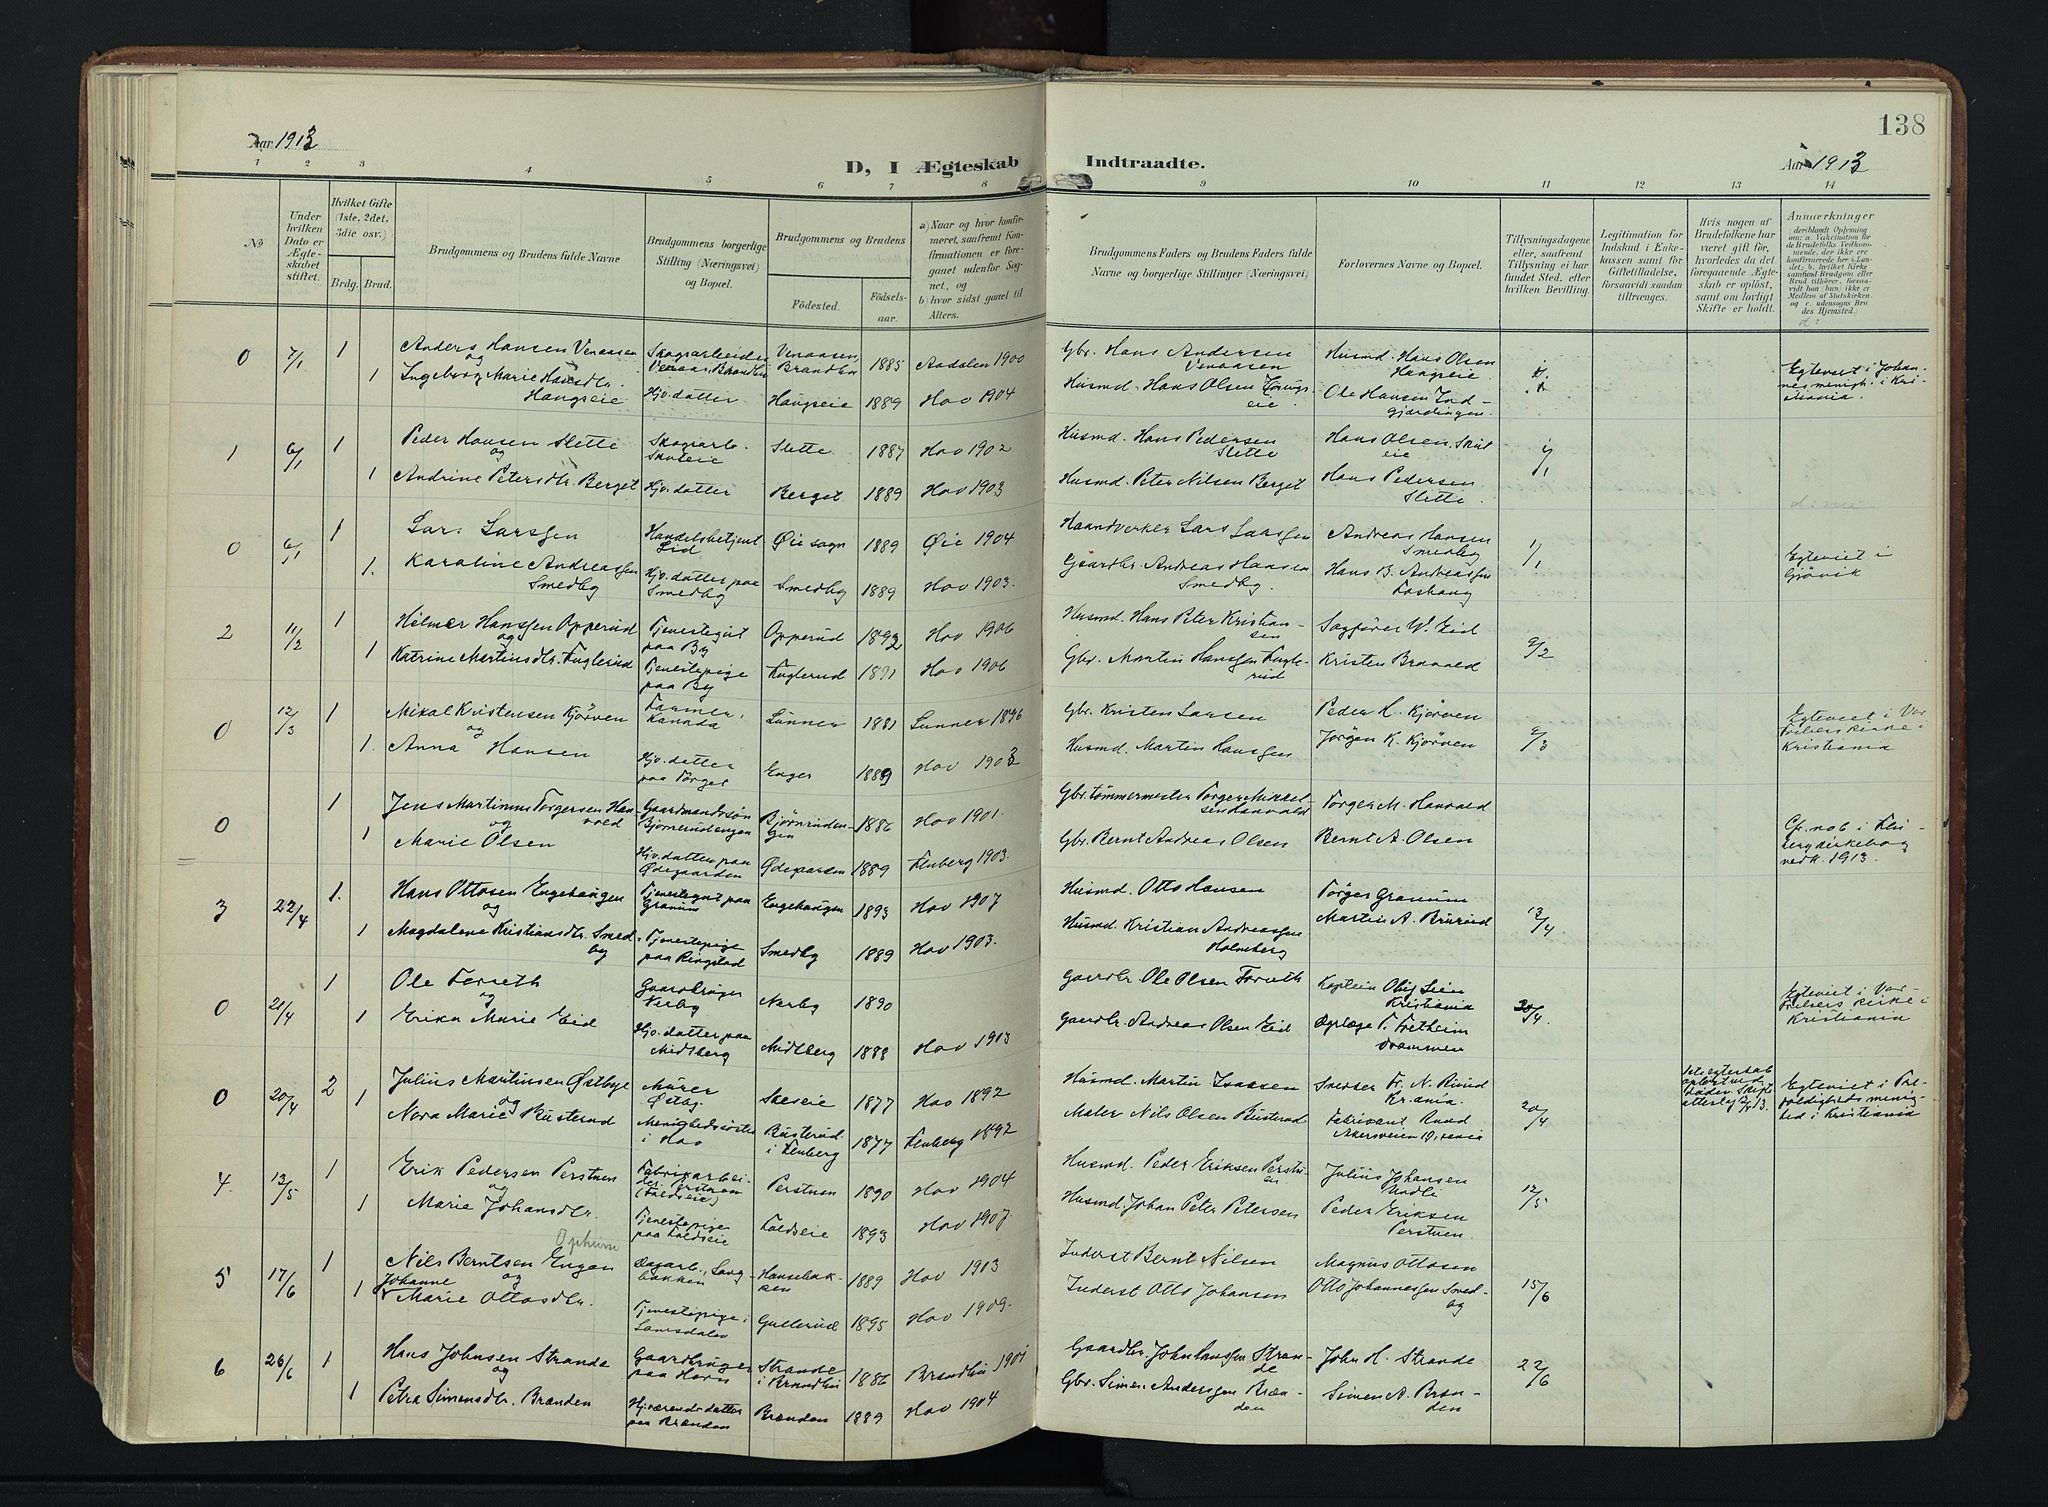 138
Aar 1913
D, I Ægteskab Indtraadte.
Aar 1913
1 2 3 4 5 6 7 8 9 10 11 12 13 14
№
Under hvilken Dato er Ægteskabet stiftet.
Hvilket Gifte (1ste, 2det, 3die osv.)
Brdg. Brud.
Brudgommens og Brudens fulde Navne
Brudgommens borgerlige Stilling (Næringsvei) og Bopæl.
Brudgommens og Brudens
Fødested. Fødselsaar.
a) Naar og hvor konfirmeret, saafremt Konfirmationen er foregaaet udenfor Sognet, og
b) hvor sidst gaaet til Alters.
Brudgommens Faders og Brudens Faders fulde Navne og borgerlige Stillinger (Næringsvei)
Forlovernes Navne og Bopæl.
Tillysningsdagene eller, saafremt Tillysning ei har fundet Sted, efter hvilken Bevilling.
Legitimation for Indskud i Enkekassen samt for Giftetilladelse, forsaavidt saadan tiltrænges.
Hvis nogen af Brudefolkene har været gift før, hvorledes da det foregaaende Ægteskab er opløst, samt om lovligt Skifte er holdt.
Anmærkninger
0 7/1 1 Anders Hansen Venaasen Skogarbeider Venaas, Brandbu Venaasen Brandbu 1885 Aadalen 1900 Gbr. Hans Andersen Venaasen Husmd. Hans Olsen Haugseie
og
1 Ingeborg Marie Hansdtr. Haugseie Hjv. datter Haugseie 1889 Hov 1904 Husmd. Hans Olsen Haugseie Ole Hansen Indgjærdingen Egteviet i Johannesmenigh. i Kristiania.
1 6/1 1 Peder Hansen Slette Skogarb. Skuteie Slette 1887 Hov 1902 Husmd. Hans Pedersen Slette Hans Olsen, Skuteie
og
1 Andrine Petersdtr. Berget Hjv. datter Berget 1889 Hov 1903 Husmd. Peter Nilsen Berget Hans Pedersen Slette
0 6/1 1 Lars Larssen Handelsbetjent Eid Øie sogn 1889 Øie 1904 Haandverker Lars Larssen Andreas Hansen Smedby 1/1
1. Karoline Andreassen Smedby Hjv. datter paa Smedby Smedby 1889 Hov 1903. Gaardbr. Andreas Hansen Smedby. Hans B. Andreassen Egteviet i Gjøvik
2 11/2 1 Hilmar Hanssen Opperud Tjenestegut paa By Opperud 1892 Hov 1906 Husmd. Hans Peter Kristiansen Sagfører W. Eid
og
1 Katrine Martinsdtr. Fuglerud Tjenestepige paa By Fuglerud 1891 Hov 1906 Gbr. Martin Hanssen Fuglerud Kristen Bravold 9/2
0 12/3 1 Mikal Kristensen Kjørven Farmer, Kanada Lunner 1881 Lunner 1896 Gbr. Kristen Larsen Peder K. Kjørven
og
1. Anna Hansen Hjv. datter paa Torget Enger 1889 Hov 1903 Husmd. Martin Hanssen Jørgen K. Kjørven 2/3 Egteviet i Vor Frelsers kirke i Kristiania
0 1 Jens Martinus Torgersen Hanvold Gaardmandssøn Bjørnerudengen Bjørnrudengen 1886 Hov 1901. Gbr. tømmermester Torger Mikkelsen Hanvold Torger M. Hanvold
og
1 Marie Olsen Hjv. datter paa Ødegaarden Ødegaarden 1889 Fluberg 1903. Gbr. Bernt Andreas Olsen Bernt A. Olsen Cfr. no 6 i Fluberg kirkebog vedk. 1913.
3 22/4 1. Hans Ottosen Engehaugen Tjenestegut paa Granum Engehaugen 1893 Hov 1907 Husmd. Otto Hansen Torger Granum
og
1 Magdalene Kristiansdtr. Smedby Tjenestepige paa Ringstad Smedby 1889 Hov 1903. Husmd. Kristian Andreassen Holmberg Martin A. Brurud 13/4
0 21/4 1 Ole Forseth Gaardbruger Nerby Nerby 1890 Gaardbr. Ole Olsen Forseth Kaptein Kristiania
og
1 Erika Marie Eid Hjv. datter paa Midtberg Midtberg 1888 Hov 1903 Gaardbr. Andreas Olsen Eid T. Fretheim Drammen 20/4. Egteviet i Vor Frelsers kirke i Kristiania
0 20/4 2 Julius Martinsen Østbye Murer Østby Skeseie 1877 Hov 1892 Husmd. Martin Isaksen Snedker Fr. N. Kr.ania.
og
1 Nora Marie Busterud Menighedssøster i Hov Busterud i Fluberg 1877 Fluberg 1892 Maler Nils Olsen Busterud Fabrikant Ruud Akersveien 20/4 1ste egteskab opløst ved døden. Egteviet i Trefoldigheds menighed i Kristiania
4. 12/5 1 Erik Pedersen Perstuen Fabrikarbeider, Perstuen (Foldseie) Perstuen 1890 Hov 1904 Husmd. Peder Eriksen Perstuen Julius Johansen
og
1 Marie Johansdtr. Tjenestepige paa Foldseie Foldseie 1893 Hov 1907. Husmd. Johan Peter Petersen Peder Eriksen Perstuen. 12/5
Ophum
5 17/6 1 Nils Berntsen Engen Dagarb., Langbakken Hansebakken 1889 Hov 1903 Inderst Bernt Nilsen Magnus Ottosen
Johanne og
1 Marie Ottosdtr. Tjenestepige, Lomsdalen Gullerud 1895 Hov 1909. Inderst Otto Johansen Otto Johannessen Smedby 15/6
6 26/6 1 Hans Johnsen Strande Gaardbruger paa Horn Strande i Brandbu 1886 Brandbu 1901 Gaardbr. John Hanssen Strande John H. Strande 22/6
og
1 Petra Simensdtr. Brænden Hjv.ærende datter paa Brænden Brænden 1889 Hov 1904 Gbr. Simen Anderssen Brænden Simen A. Brænden